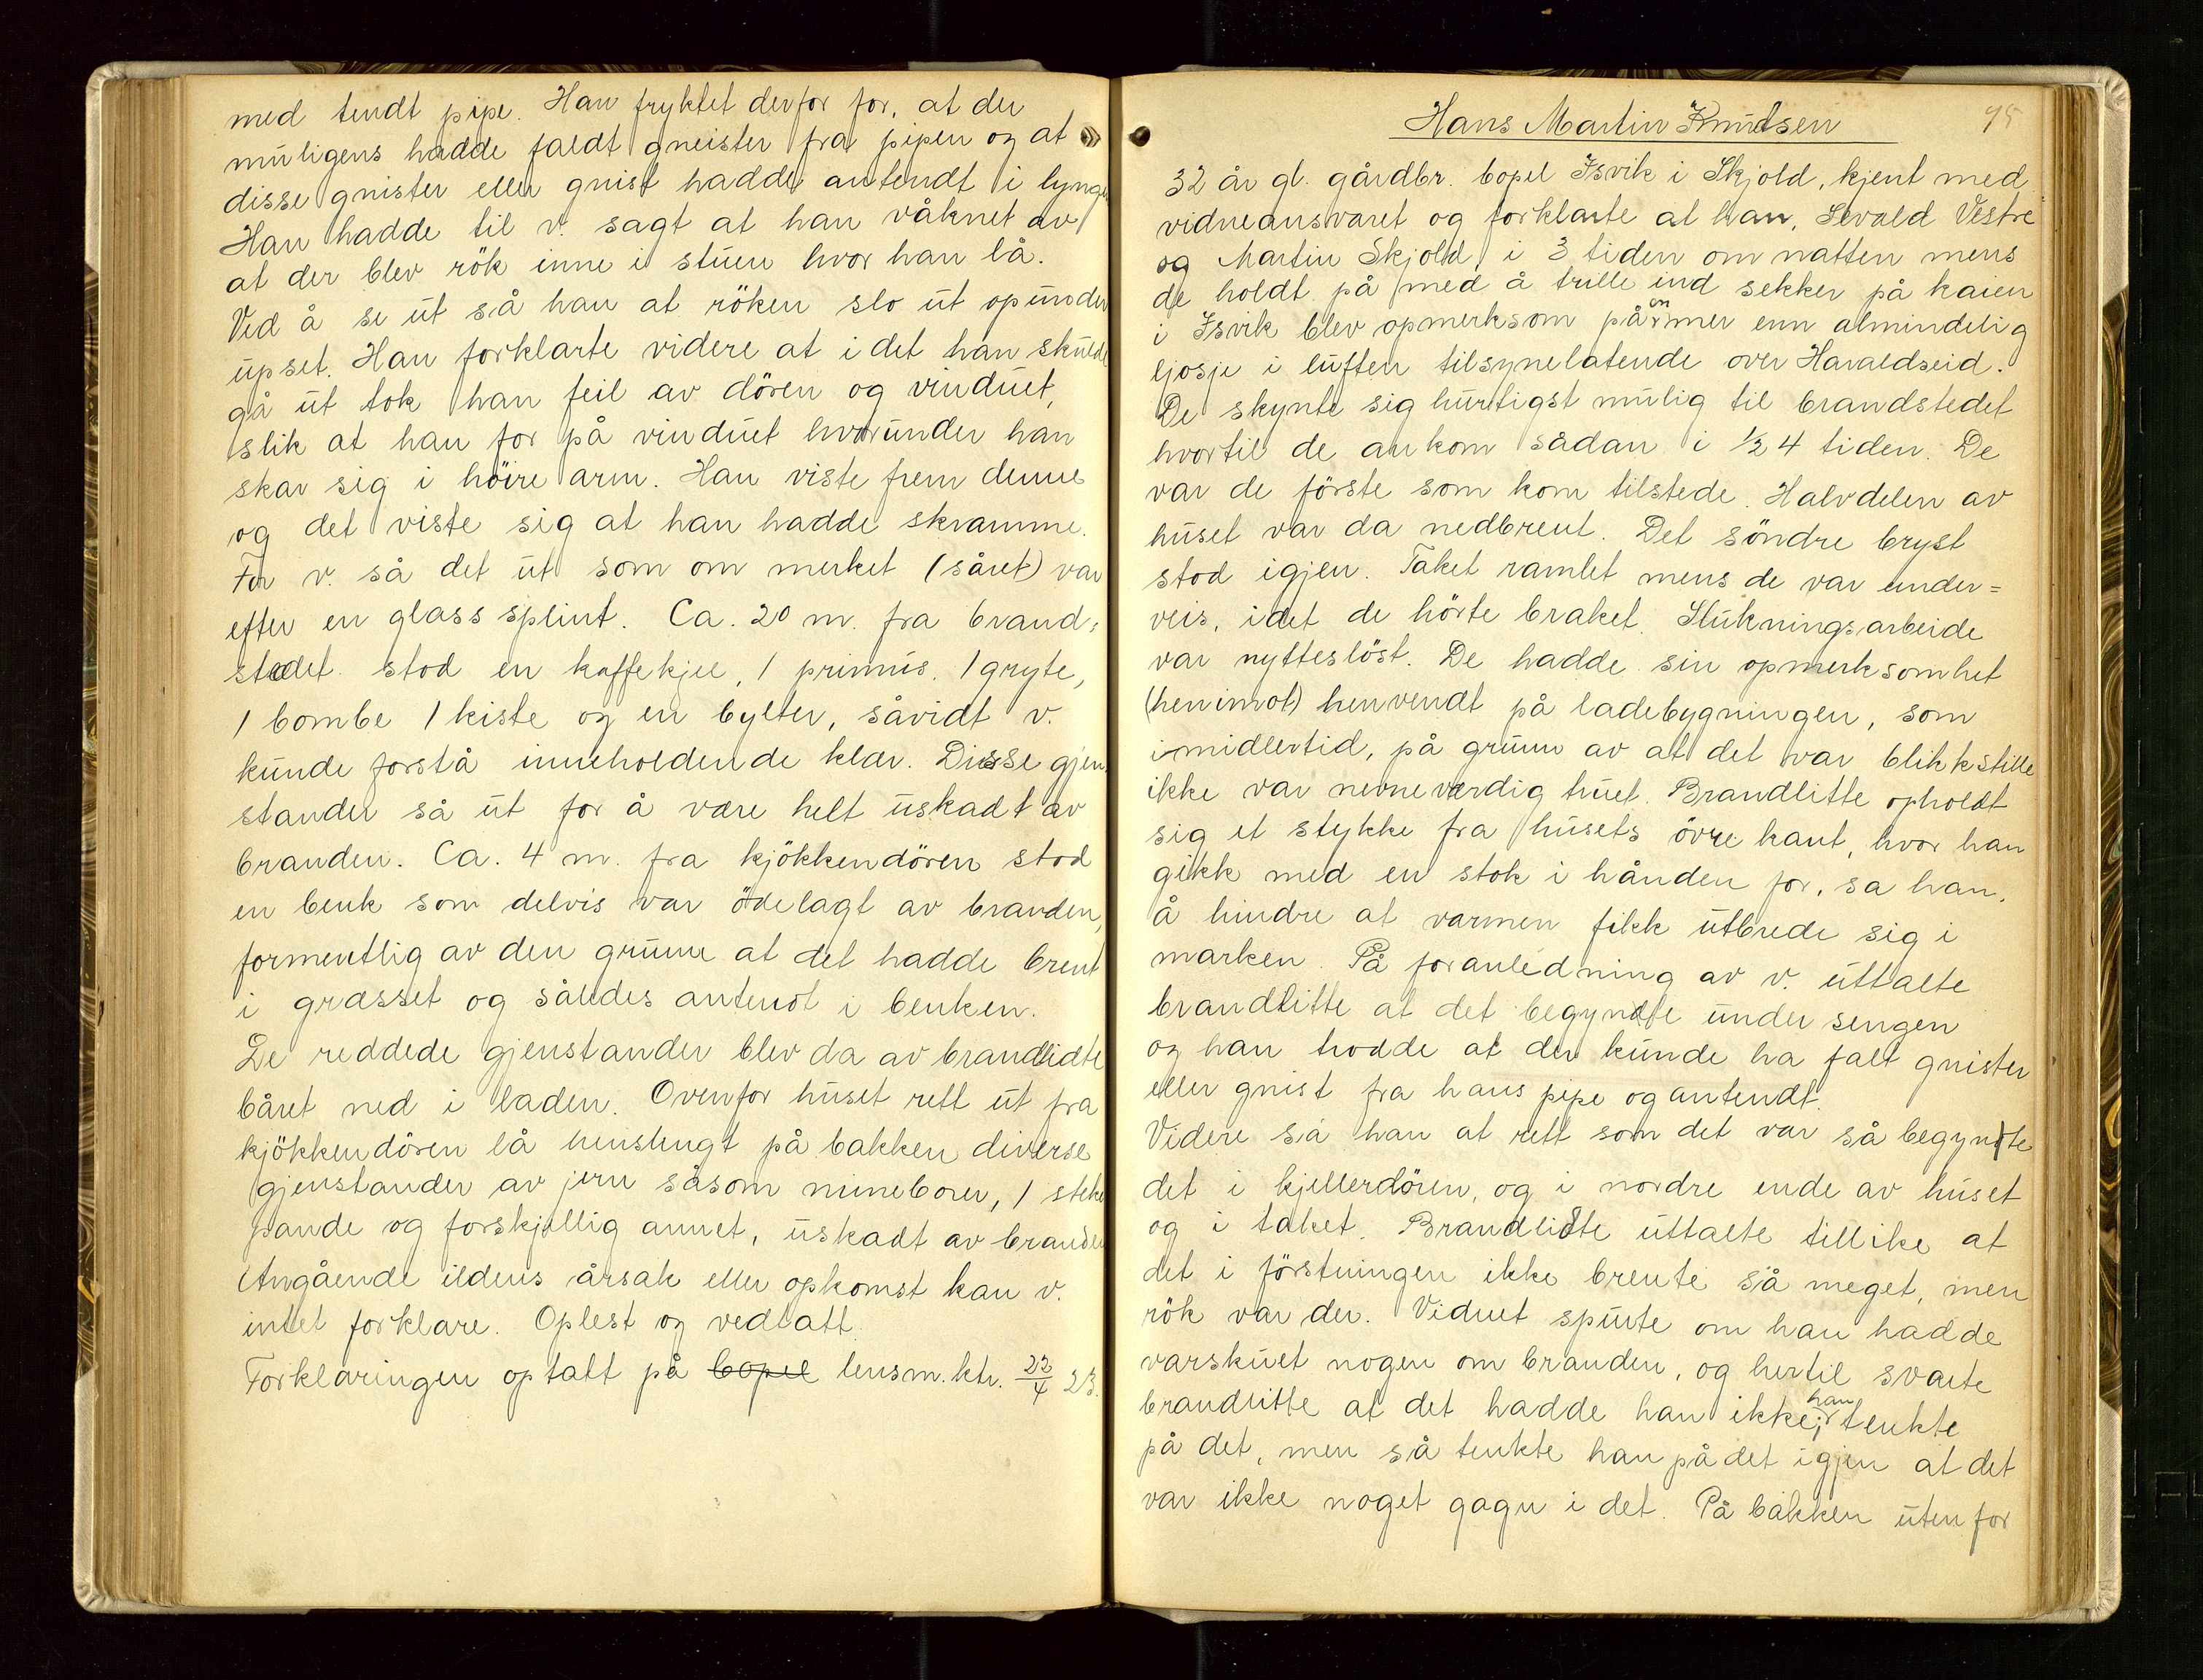 med tendt pipe. Han fryktet derfor for, at der
muligens hadde faldt gneister fra pipen og at
disse gnister eller gnist hadde antendt i lynge
Han hadde til v. sagt at han våknet av
at der blev rök inne i stuen hvor han lå.
Ved å se ut så han at röken slo ut opunder
upset. Han forklarte videre at i det han skulde
gå ut tok han feil av dören og vinduet,
slik at han for på vinduet hvorunder han
skar sig i höire arm. Han viste frem denne
og det viste sig at han hadde skramme.
For v. så det ut som om merket (såret) var
efter en glass splint. Ca. 20 m. fra brand=
stedet stod en kaffekjel, 1 primus. 1 gryte,
1 bombe 1 kiste og en bylter, såvidt v.
kunde forstå inneholdende klær. Disse gjen
stander så ut for å være helt uskadt av
branden. Ca. 4 m. fra kjökkendören stod
en benk som delvis var ödelagt av branden,
formentlig av den grunn at det hadde brent
i græsset og således antendt i benken.
De reddede gjenstander blev da av brandlidte
båret ned i laden. Ovenfor huset rett ut fra
kjökkendören lå henslengt på bakken diverse
gjenstander av jern såsom mineborer, 1 steke
pande og forskjellig annet, uskadt av branden
Angående ildens årsak eller opkomst kan v.
intet forklare. Oplest og vedtatt.
Forklaringen optatt på bopel lensm. ktr. 22/4 23.
95
Hans Martin Knudsen
32 år gl. gårdbr. bopel Isvik i Skjold, kjent med
vidneansvaret og forklarte at han, Sevald Vestre
og Martin Skjold i 3 tiden om natten mens
de holdt på med å trille ind sekker på kaien
i Isvik blev opmerksom på en mer enn almindelig
ljosje i luften tilsynelatende over Haraldseid.
De skynte sig hurtigst mulig til brandstedet
hvortil de ankom sådan i ½ 4 tiden. De
var de förste som kom tilstede. Halvdelen av
huset var da nedbrent. Det söndre bryst
stod igjen. Taket ramlet mens de var under=
veis, idet de hörte braket. Slukningsarbeide
var nytteslöst. De hadde sin opmerksomhet
(henimot) henvendt på ladebygningen, som
imidlertid, på grunn av at det var blikkstille
ikke var nevneværdig truet. Brandlitte opholdt
sig et stykke fra husets övre kant, hvor han
gikk med en stok i hånden for, sa han,
å hindre at varmen fikk utbrede sig i
marken. På foranledning av v. uttalte
brandlitte at det begyndte under sengen
og han trodde at der kunde ha falt gnister
eller gnist fra hans pipe og antendt.
Videre sa han at rett som det var så begyndte
det i kjellerdören, og i nordre ende av huset
og i taket. Brandlidte uttalte tillike at
det i förstningen ikke brente så meget, men
rök var der. Vidnet spurte om han hadde
varskuet nogen om branden, og hertil svarte
brandlitte at det hadde han ikke; han tenkte
på det, men så tenkte han på det igjen at det
var ikke noget gagn i det. På bakken utenfor